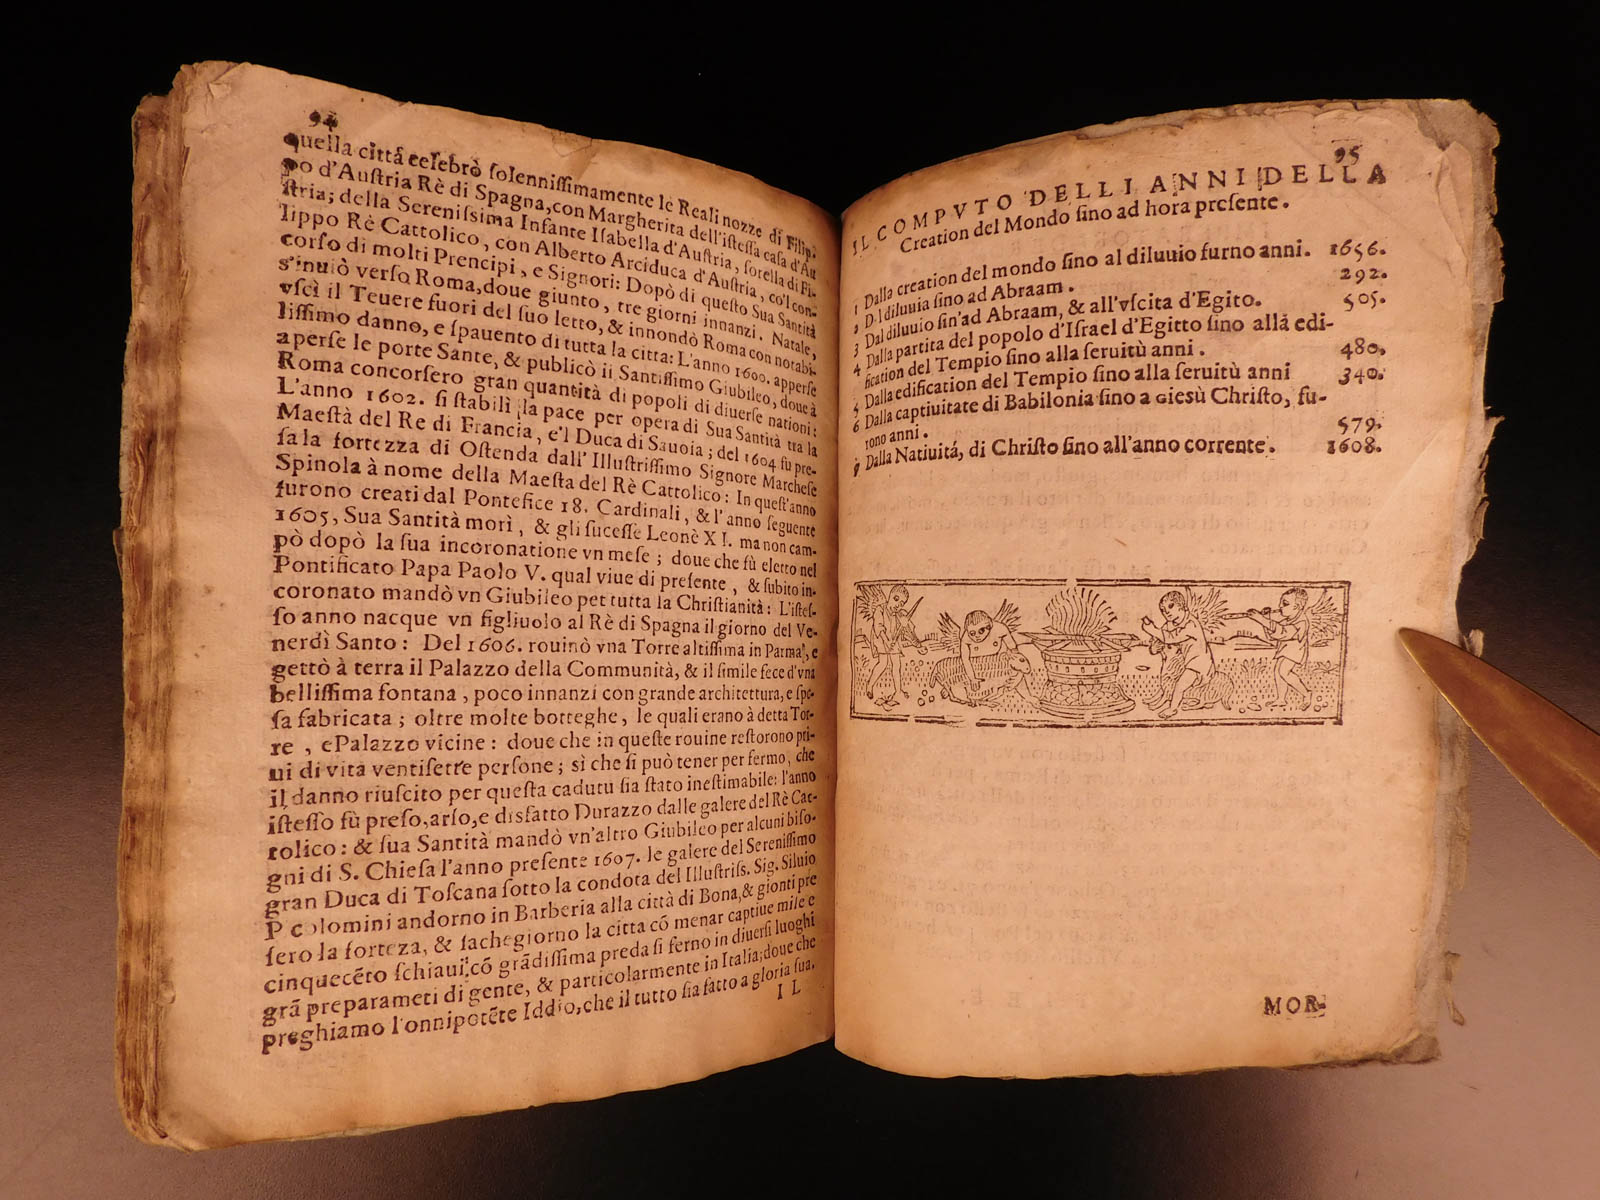 94
quella cittá celebrò ſolenniſſimamente le Reali nozze di Filip-
po d'Auſtria Rè di Spagna, con Margherita dell'iſteſſa caſa d'Au
ſtria; della Sereniſsima Infante Iſabella d'Auſtria, ſorella di Fi-
lippo Rè Cattolico, con Alberto Arciduca d'Auſtria, co'l con-
corſo di molti Prencipi, e Signori: Dopò di queſto Sua Santità
s'inuiò verſo Roma, doue giunto, tre giorni innanzi. Natale,
vſcì il Teuere fuori del ſuo letto, & innondò Roma con notabi-
liſſimo danno, e ſpauento di tutta la citta: L'anno 1600. apperſe
aperſe le porte Sante, & publicò il Santiſſimo Giubileo, doue à
Roma concorſero gran quantità di popoli di diuerſe nationi:
L'anno 1602. ſi ſtabilì la pace per opera di Sua Santità tra la
Maeſtà del Re di Francia, e'l Duca di Sauoia; del 1604 fù pre-
ſa la fortezza di Oſtenda dall'Illuſtriſſimo Signore Marcheſe
Spinola à nome della Maeſta del Rè Cattolico: In queſt'anno
furono creati dal Pontefice 18. Cardinali, & l'anno ſeguente
1605, Sua Santità morì, & gli ſuceſſe Leonè XI. ma non cam-
pò dopò la ſua incoronatione vn meſe; doue che fù eletto nel
Pontificato Papa Paolo V. qual viue di preſente, & ſubito in-
coronato mandò vn Giubileo pet tutta la Chriſtianità: L'iſteſ-
ſo anno nacque vn figliuolo al Rè di Spagna il giorno del Ve-
nerdì Santo: Del 1606. rouinò vna Torre altiſſima in Parma, e
gettò à terra il Palazzo della Communità, & il ſimile fece d'vna
belliſſima fontana, poco innanzi con grande architettura, e ſpe-
ſa fabricata; oltre molte botteghe, le quali erano à detta Tor-
re, e Palazzo vicine: doue che in queſte rouine reſtorono pri-
ui di vita ventiſette perſone; sì che ſi può tener per fermo, che
il danno riuſcito per queſta caduta ſia ſtato ineſtimabile: l'anno
iſteſſo fù preſo, arſo, e disfatto Durazzo dalle galere del Rè Cat-
tolico: & ſua Santità mandò vn'altro Giubileo per alcuni biſo-
gni di S. Chieſa l'anno preſente 1607. le galere del Sereniſſimo
gran Duca di Toſcana ſotto la condota del Illuſtriſs. Sig. Siluio
P colomini andorno in Barberia alla città di Bona, & gionti pre
ſero la forteza, & ſachegiorno la citta cõ menar captiue mile e
cinquecẽto ſchiaui, cõ grãdiſſima preda ſi ferno in diuerſi luoghi
grã preparameti di gente, & particolarmente in Italia; doue che
preghiamo l'onnipotẽte Iddio, che il tutto ſia fatto a gloria ſua.
IL
95
IL COMPVTO DELLI ANNI DELLA
Creation del Mondo ſino ad hora preſente.
1 Dalla creation del mondo ſino al diluuio furno anni. 1656.
2 Dal diluuia ſino ad Abraam. 292.
3 Dal diluuio ſin'ad Abraam, & all'vſcita d'Egito. 505.
4 Dalla partita del popolo d'Iſrael d'Egitto ſino alla edi-
fication del Tempio ſino alla ſeruitù anni. 480.
5 Dalla edification del Tempio ſino alla ſeruitù anni 340.
6 Dalla captiuitate di Babilonia ſino a Gieſù Chriſto, fu-
rono anni. 579.
7 Dalla Natiuitá, di Chriſto ſino all'anno corrente. 1608.
MOR-